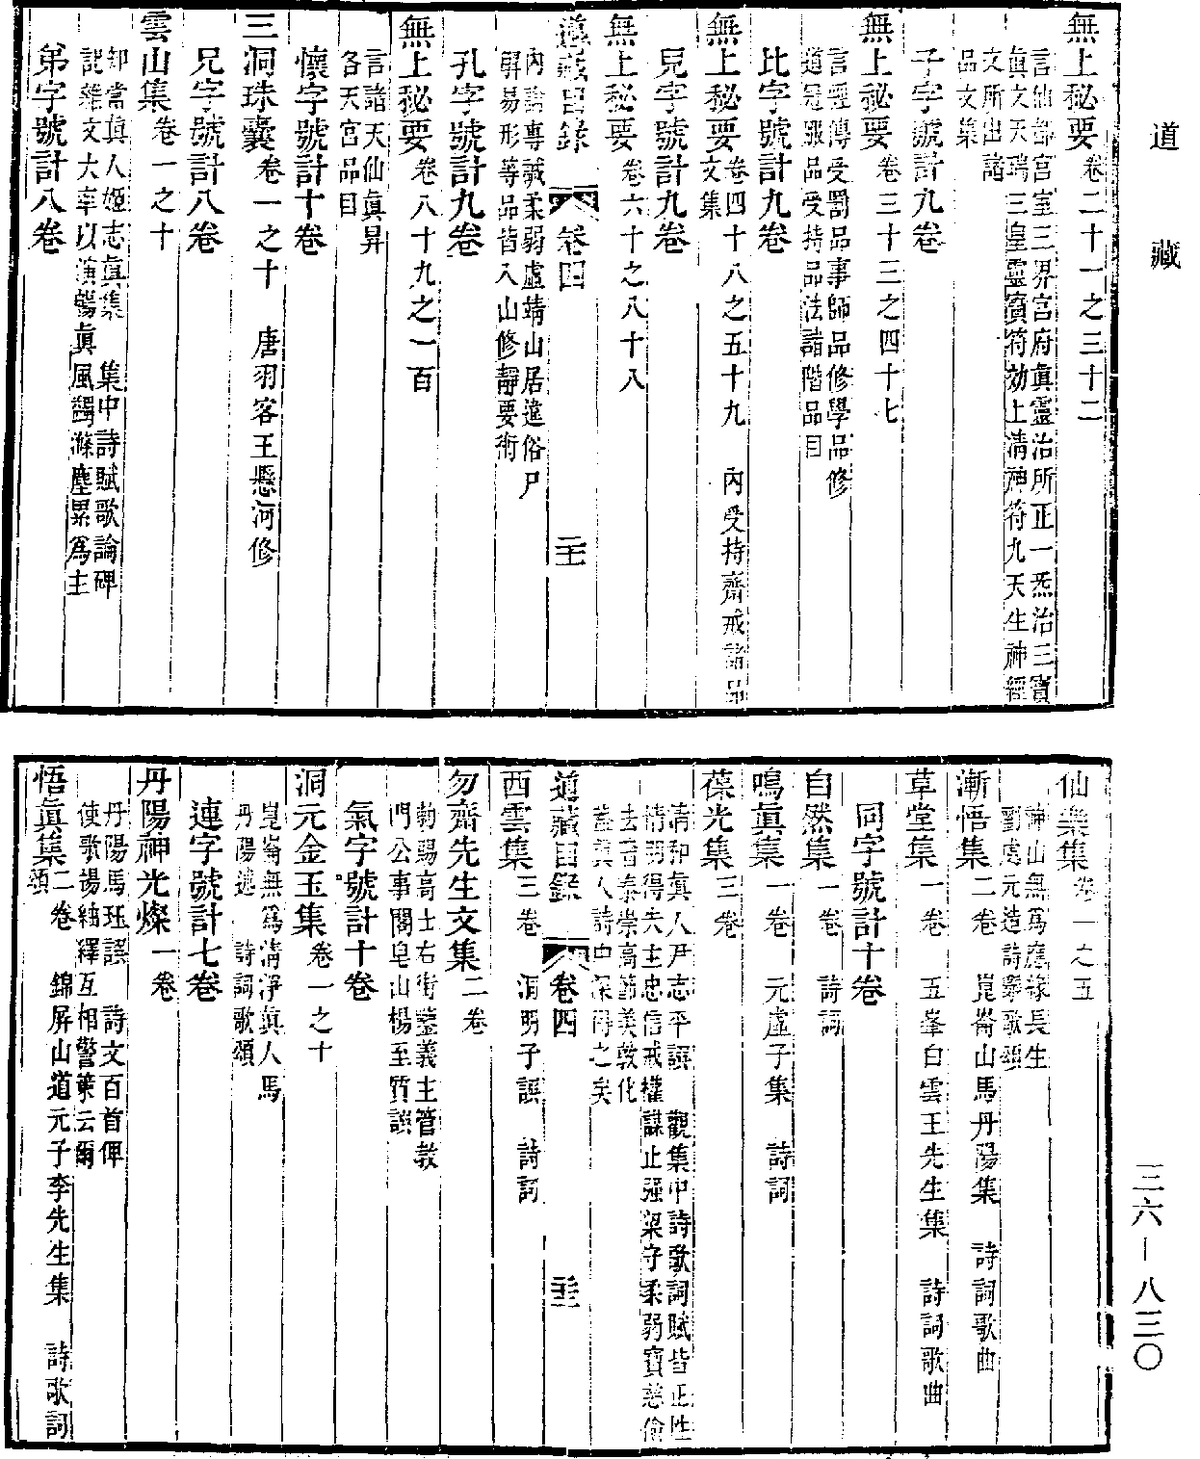 道藏
無上秘要卷二十一之三十二
言仙都宮室三界宮府眞靈治所正一炁治三寶
眞文天瑞三皇靈寶符効上清神符九天生神經
文所出諸
品文集
子字號計九卷
無上秘要卷三十三之四十七
言經傳受罰品事師品修學品修
道冠服品受持品法諸階品目
比字號計九卷
無上秘要卷四十八之五十九 內受持齋戒諸品
文集
兒字號計九卷
無上秘要卷六十之八十八
道藏目錄 卷四 二十二
內論專誠柔弱虛靖山居違俗尸
解易形等品皆入山修靜要術
孔字號計九卷
無上秘要卷八十九之一百
言諸天仙眞昇
各天宮品目
懷字號計十卷
三洞珠囊卷一之十 唐羽客王懸河修
兄字號計八卷
雲山集卷一之十
知當眞人姬志眞集 集中詩賦歌論碑
記雜文大率以演暢眞風蠲滌塵累爲主
弟字號計八卷
仙樂集卷一之五
神山無爲應緣長生
劉處元造詩舉歌頌
漸悟集二卷 崑崙山馬丹陽集 詩詞歌曲
草堂集一卷 五峯白雲王先生集 詩詞歌曲
同字號計十卷
自然集一卷 詩詞
鳴眞集一卷 元虛子集 詩詞
葆光集三卷
清和眞人尹志平譔 觀集中詩歌詞賦皆正性
情明得失主忠信戒權謀止强梁守柔弱寶慈儉
去吝泰崇高節美敦化
蓋眞人詩中深得之矣
道藏目錄 卷四 二十三
西雲集三卷 洞明子譔 詩詞
勿齋先生文集二卷
勅賜高士右街鑒義主管教
門公事閣皂山楊至質譔
氣字號計十卷
洞元金玉集卷一之十
崑崙無爲清淨眞人馬
丹陽述 詩詞歌頌
連字號計七卷
丹陽神光燦一卷
丹陽馬珏譔 詩文百首俾
使歌揚紬釋互相警策云爾
悟眞集二卷 錦屏山道元子李先生集 詩歌詞
頌
三六—八三〇